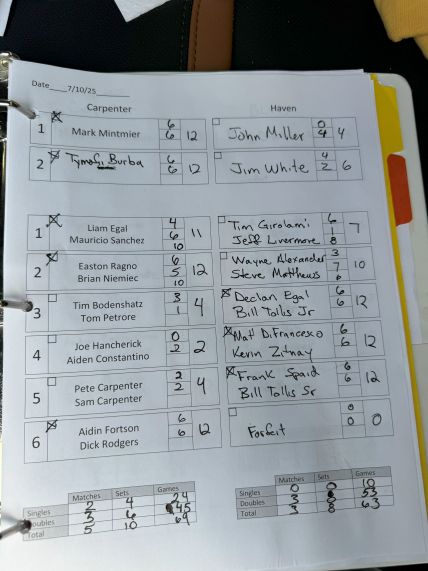 Date____7/10/25______
Carpenter Haven
1 Mark Mintmier 6 6 12 John Miller 0 4 4
2 Burba 6 6 12 Jim White 4 2 6
1 Liam Egal Mauricio Sanchez 4 6 10 11 Tim Girolami Jeff Livermore 6 1 8 7
2 Easton Ragno Brian Niemiec 6 5 10 12 Wayne Alexander Steve Matthews 3 7 6 10
3 Tim Bodenshatz Tom Petrore 3 1 4 Declan Egal Bill Tollis Jr 6 6 12
4 Joe Hancherick Aiden Constantino 0 2 2 Matt DiFrancesco Kevin Zitnay 6 6 12
5 Pete Carpenter Sam Carpenter 2 2 4 Frank Spaid Bill Tollis Sr 6 6 12
6 Aidin Fortson Dick Rodgers 6 6 12 Forfeit 0 0 0
Matches Sets Games Matches Sets Games
Singles 2 4 24 Singles 0 0 10
Doubles 3 6 45 Doubles 3 8 53
Total 5 10 69 Total 3 8 63